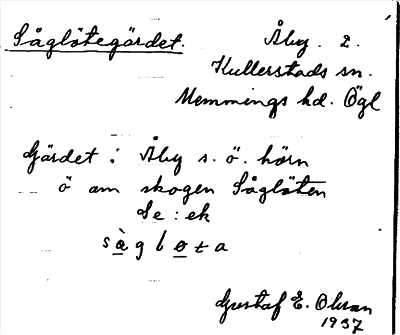 Såglötegärdet.
Åby. 2.
Kullerstads sn.
Memmings hd. Ögl
Gärdet i Åby s. ö. hörn
ö om skogen Såglöten
Se : ek
sàgløta
Gustaf E. Olsson
1937